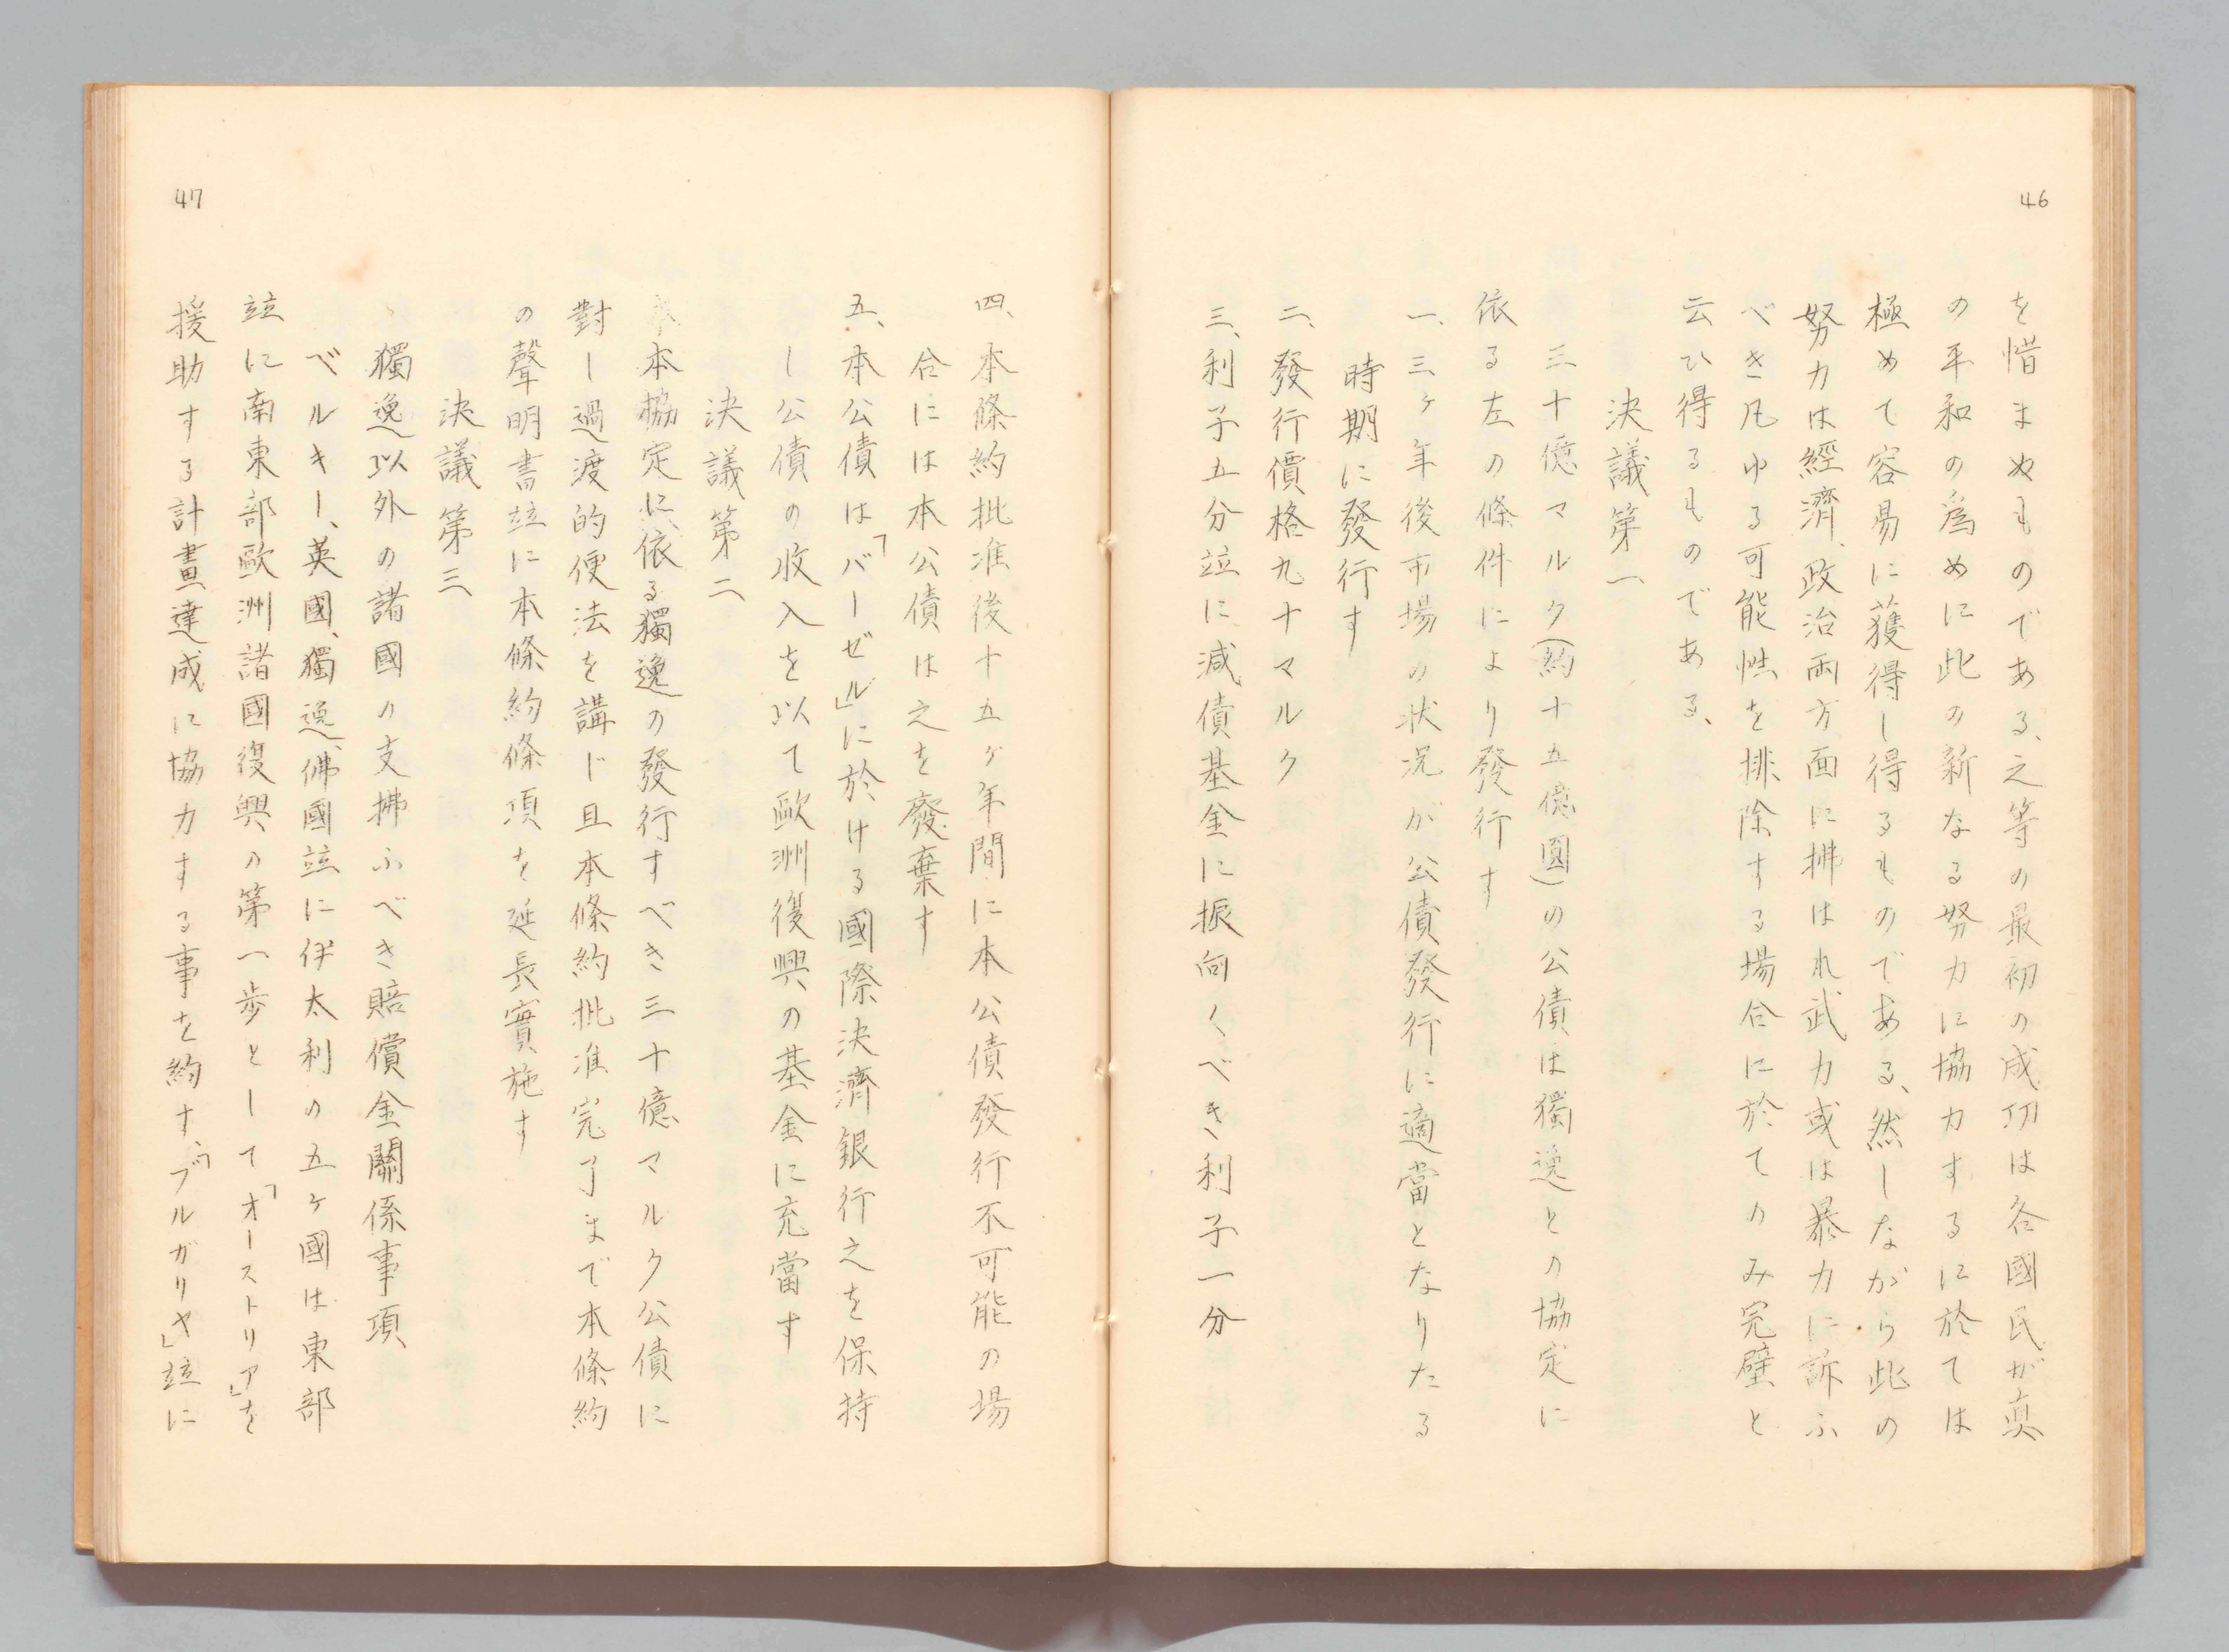 46
を惜まぬものである、之等の最初の成功は各國民が眞
の平和の爲めに此の新なる努力に協力するに於ては
極めて容易に獲得し得るものである、然しながら此の
努力は經濟、政治両方面に拂はれ武力或は暴力に訴ふ
べき凡ゆる可能性を排除する場合に於てのみ完璧と
云ひ得るものである、
決議第一
三十億マルク(約十五億圓)の公債は獨逸との協定に
依る左の條件により發行す
一、三ヶ年後市場の状況が公債發行に適當となりたる
時期に發行す
二、發行價格九十マルク
三、利子五分竝に減債基金に振向くべき利子一分
四、本條約批准後十五ヶ年間に本公債發行不可能の場
合には本公債は之を廢棄す
五、本公債は「バーゼル」に於ける國際決濟銀行之を保持
し公債の收入を以て歐洲復興の基金に充當す
決議第二
本協定に依る獨逸の發行すべき三十億マルク公債に
對し過渡的便法を講じ且本條約批准完了まで本條約
の聲明書竝に本條約條項を延長實施す
決議第三
獨逸以外の諸國の支拂ふべき賠償金關係事項
ベルキー、英國、獨逸、佛國竝に伊太利の五ヶ國は東部
竝に南東部歐洲諸國復興の第一歩として「オーストリア」を
援助する計畫達成に協力する事を約す、「ブルガリヤ」竝に
47